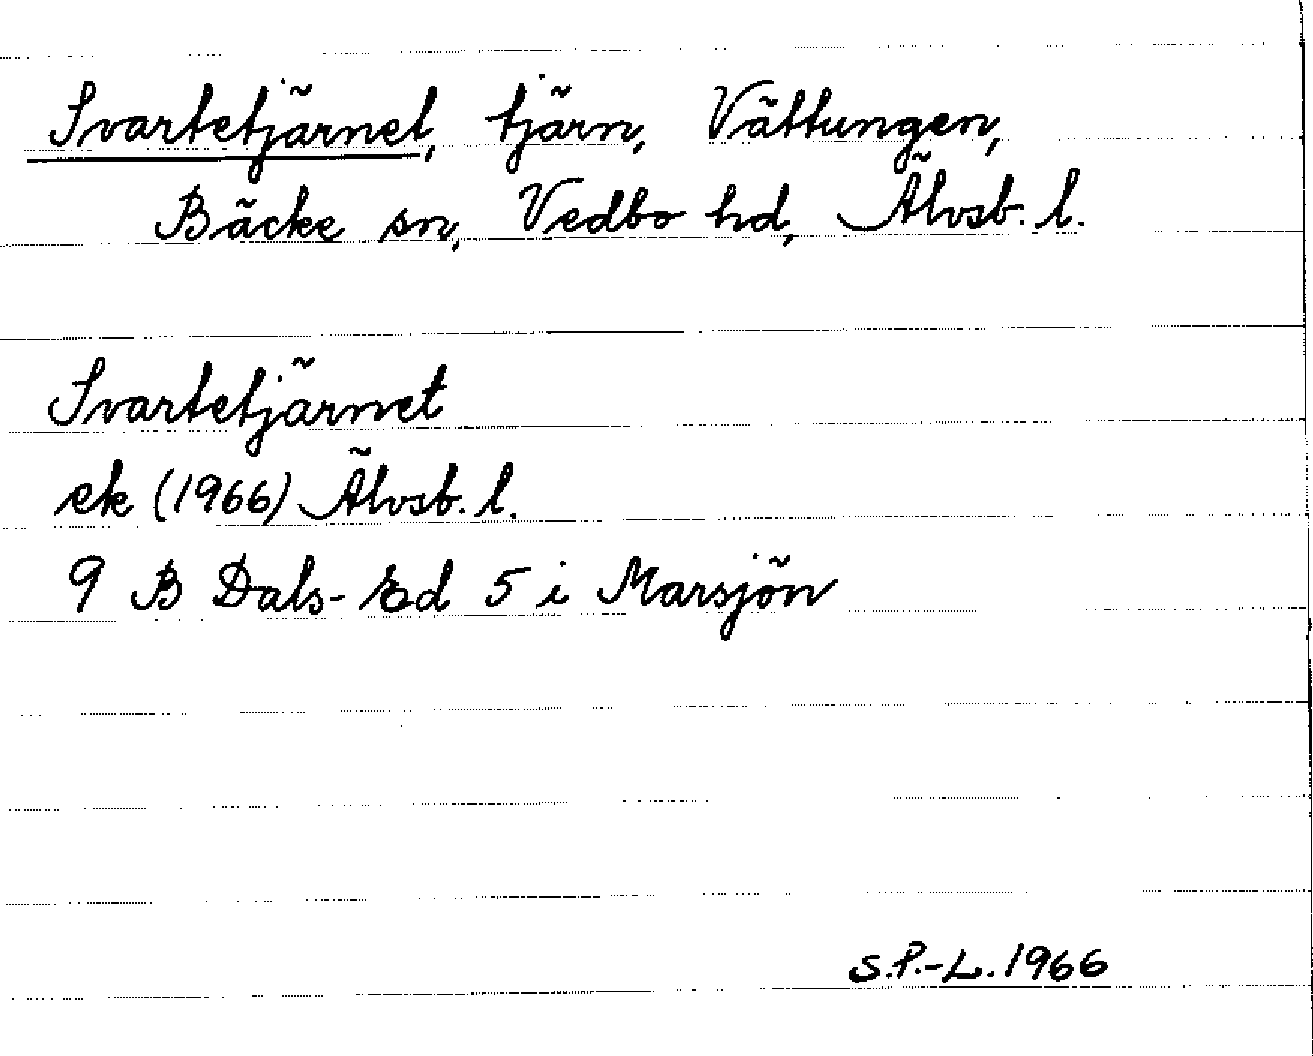 Svartetjärnet, tjärn, Vättungen,
Bäcke sn, Vedbo hd, Älvsb. l.
Svartetjärnet
ek (1966) Älvsb. l.
9 B Dals-Ed 5 i Marsjön
S.P.-L. 1966